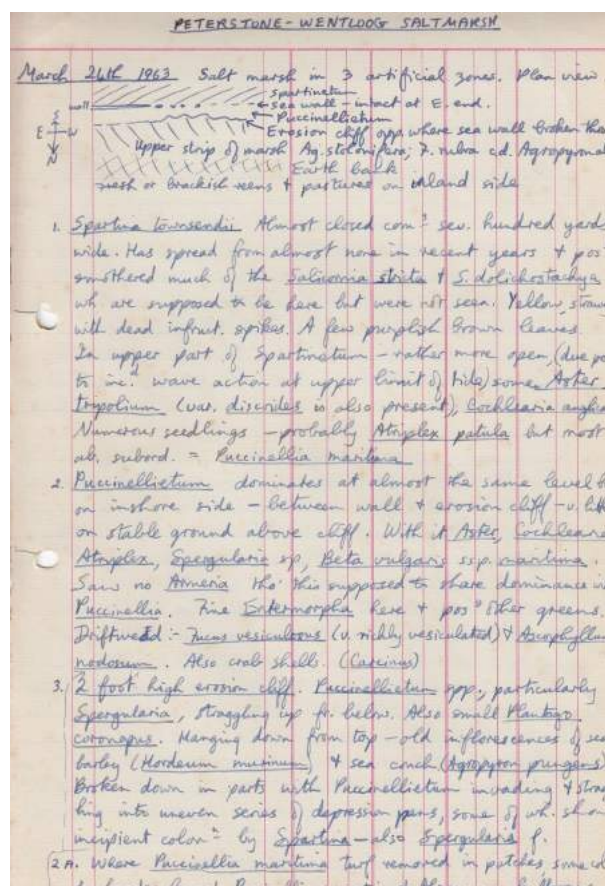 PETERSTONE - WENTLOOG SALTMARSH
March 26th 1963 Salt marsh in 3 artificial zones. Plan view
Spartinetum
wall
sea wall - intact at E. end.
Puccinellietum
S
E W
N
Erosion cliff opp. where sea wall broken
Upper strip of marsh Ag. stolonifera; F. rubra cd.
Earth bank
fresh or brackish reens & pastures on inland side
1. Spartina townsendii Almost closed com? sev. hundred yards
wide. Has spread from almost none in recent years & pos
smothered much of the Salicornia stricta & S. dolichostachya
wh are supposed to be here but were not seen. Yellow, straw
with dead infruit. spikes. A few purplish brown leaves
In upper part of Spartinetum - rather more open, (due
to inc.d wave action at upper limit of tide) some Aster
tripolium (var. discoides is also present), Cochlearia anglica
Numerous seedlings - probably Atriplex patula but most
ab. subord. = Puccinellia maritima
2. Puccinellietum dominates at almost the same level
on inshore side - between wall & erosion cliff - v.
on stable ground above cliff. With it Aster, Cochlearia
Atriplex, Spergularia sp, Beta vulgaris ssp. maritima.
Saw no Armeria tho' this supposed to share dominance
Puccinellia. Fine Enteromorpha here & pos other greens.
Driftweed :- Fucus vesiculosus (v. richly vesiculated) & Ascophyllum
nodosum. Also crab shells. (Carcinus)
3. 2 foot high erosion cliff. Puccinellietum spp., particularly
Spergularia, straggling up fr. below. Also small Plantago
coronopus. Hanging down from top - old inflorescences of sea
barley (Hordeum marinum) & sea couch (Agropyron pungens)
Broken down in parts with Puccinellietum invading &
into uneven series of depression pans, some of wh.
incipient colon? by Spartina - also Spergularia f.
2A. Where Puccinellia maritima turf removed in patches some